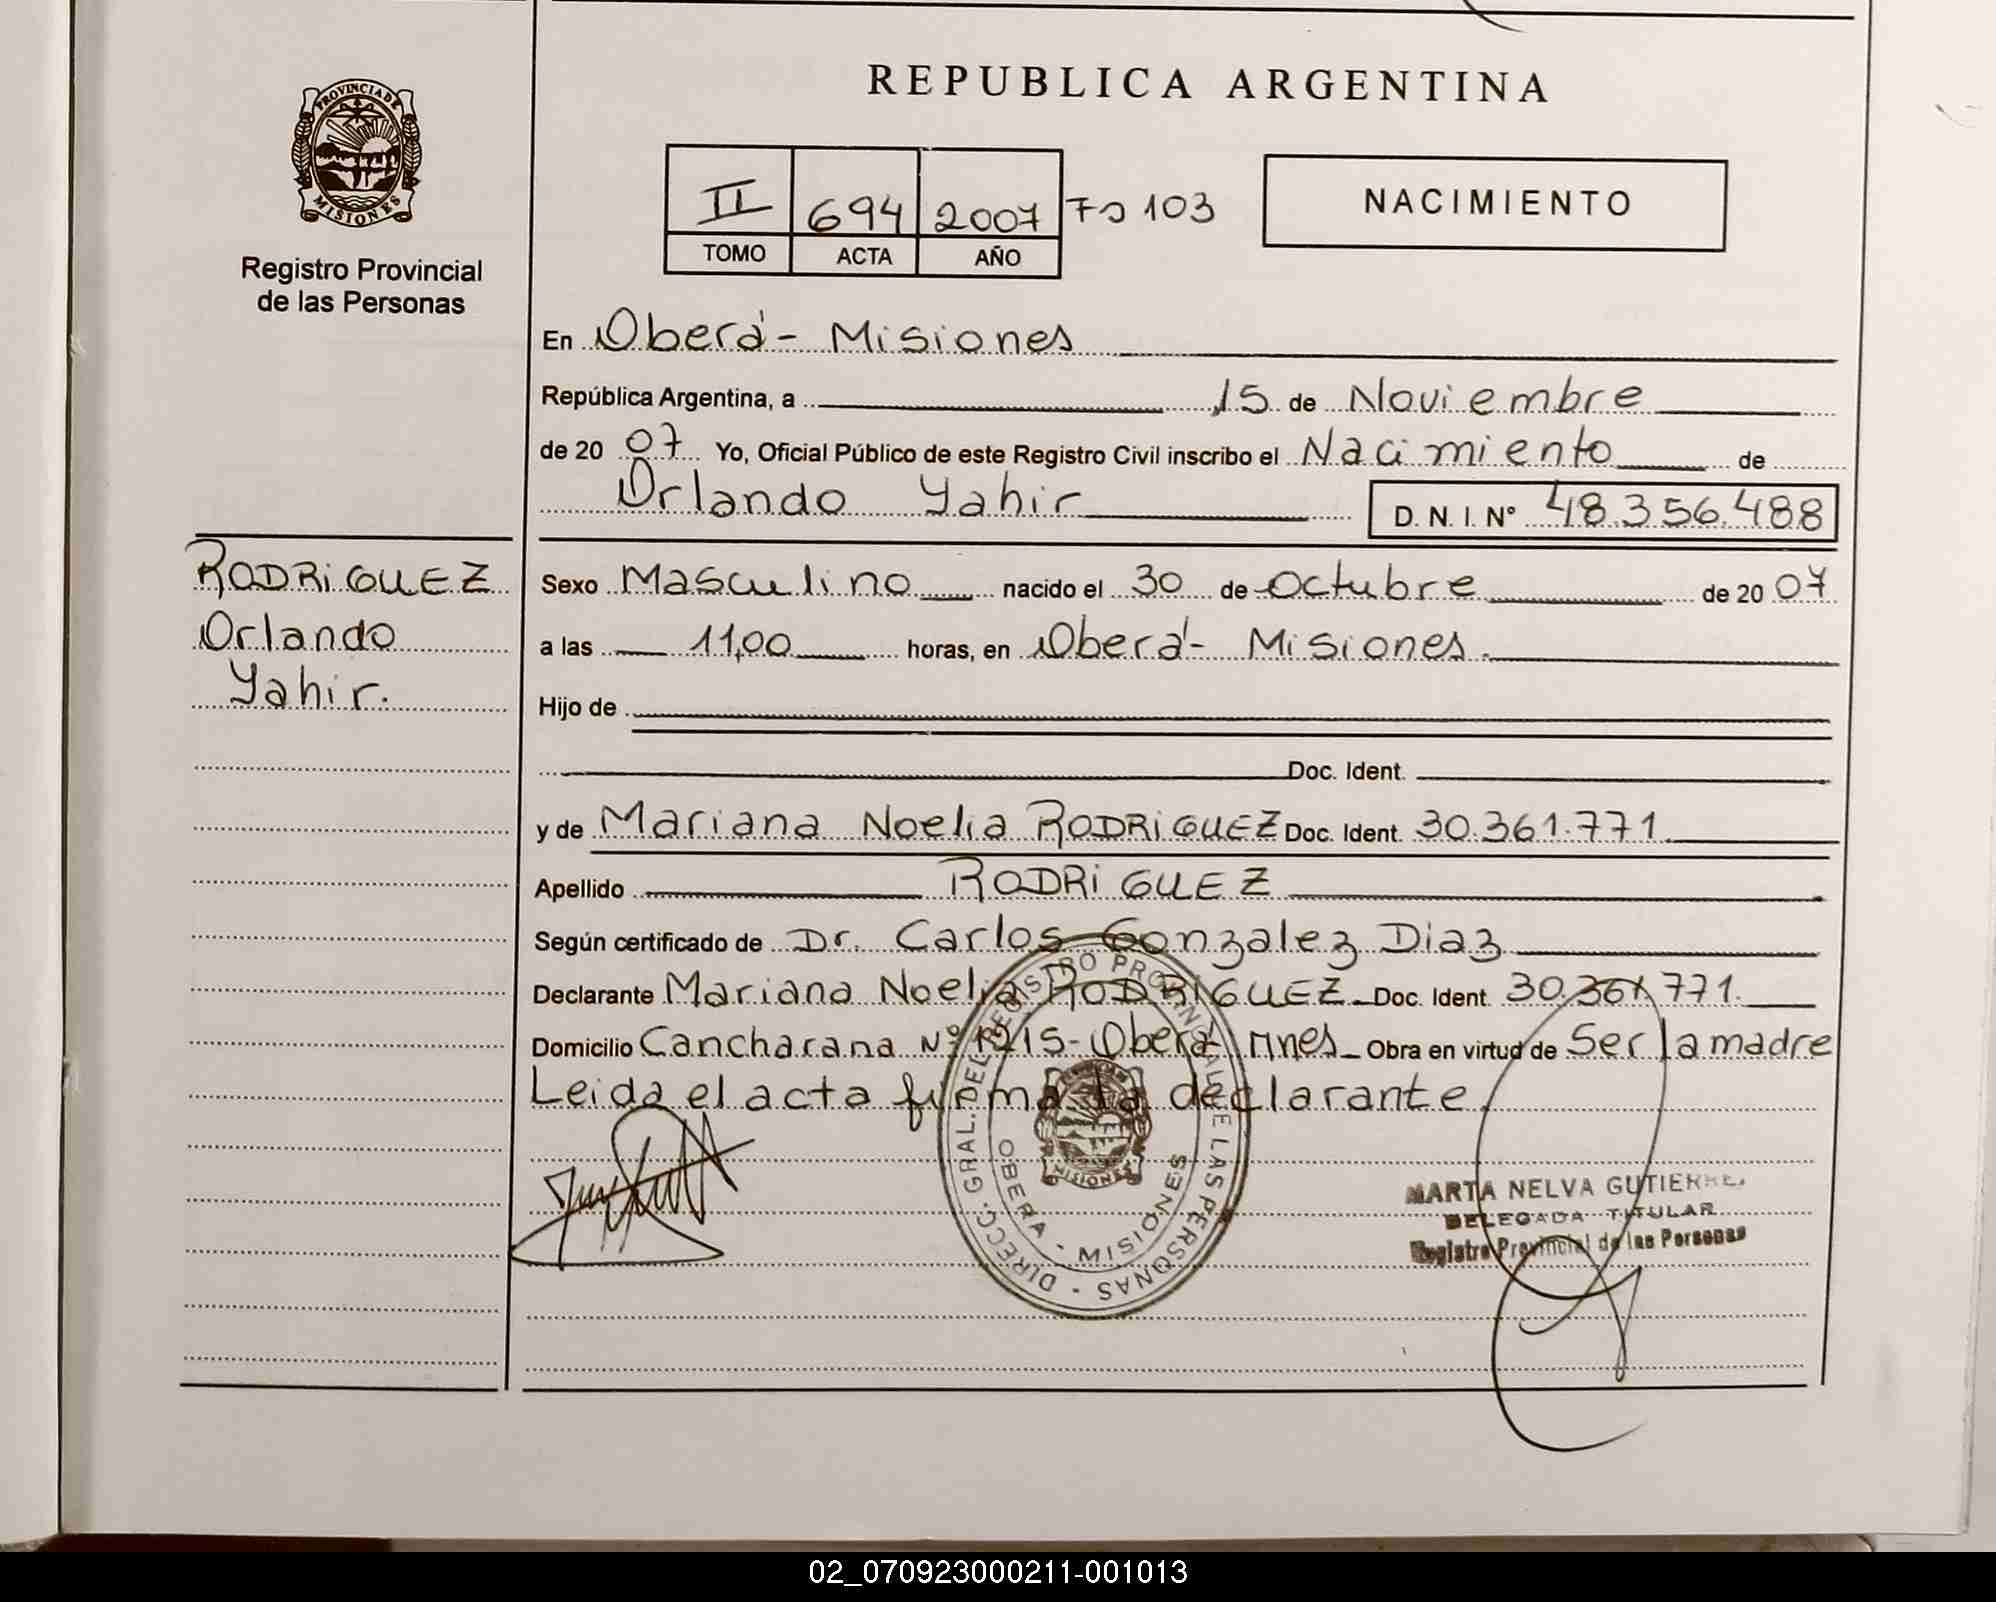 REPUBLICA ARGENTINA
PROVINCIA DE
MISIONES
Registro Provincial
de las Personas
II 694 2007 Fo 103
TOMO ACTA AÑO
NACIMIENTO
En Oberá - Misiones
República Argentina, a 15 de Noviembre
de 20 07 Yo, Oficial Público de este Registro Civil inscribo el Nacimiento de
Orlando Yahir D. N. I. Nº 48.356.488
RODRIGUEZ
Orlando
Yahir.
Sexo Masculino nacido el 30 de Octubre de 20 07
a las 11,00 horas, en Oberá - Misiones.
Hijo de
Doc. Ident.
y de Mariana Noelia RODRIGUEZ Doc. Ident. 30.361.771.
Apellido RODRIGUEZ
Según certificado de Dr. Carlos Gonzalez Diaz
Declarante Mariana Noelia RODRIGUEZ Doc. Ident. 30.361.771.
Domicilio Cancharana Nº 1215 - Oberá Mnes Obra en virtud de Ser la madre
Leida el acta firma la declarante
DIRECC. GRAL. DEL REGISTRO PROVINCIAL DE LAS PERSONAS
OBERA - MISIONES
MISIONES
MARTA NELVA
DELEGADA TITULAR
Registro Provincial de las Personas
02_070923000211-001013